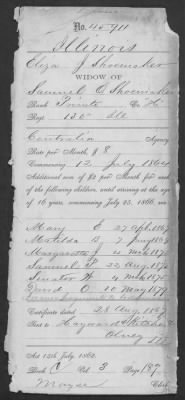 No. 45911
Illinois
Eliza J Shoemaker
WIDOW OF
Samuel C Shoemaker
Rank Private Co. "H"
Regt 130 Ills
Centralia Agency
Rate per Month, $ 8
Commencing 12 July 1864
Additional sum of $2 per Month for each
of the following children, until arriving at the age
of 16 years, commencing July 25, 1866, viz:
Mary E 27 Apl. 1867
Matilda B 7 1869
Margarette J 4 Mch 187
Samuel T 22 Aug 187
Senator H 4 Mch 187
David O 10 May 1879
Certificate dated 28 Aug 1867
Sent to Hayward & Kitchell
Olney
Ills
Act 14th July, 1862.
Vol. 3 Page 187
Clerk